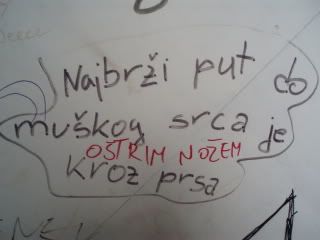 Najbrži put do
muškog srca je
OŠTRIM NOŽEM
kroz prsa